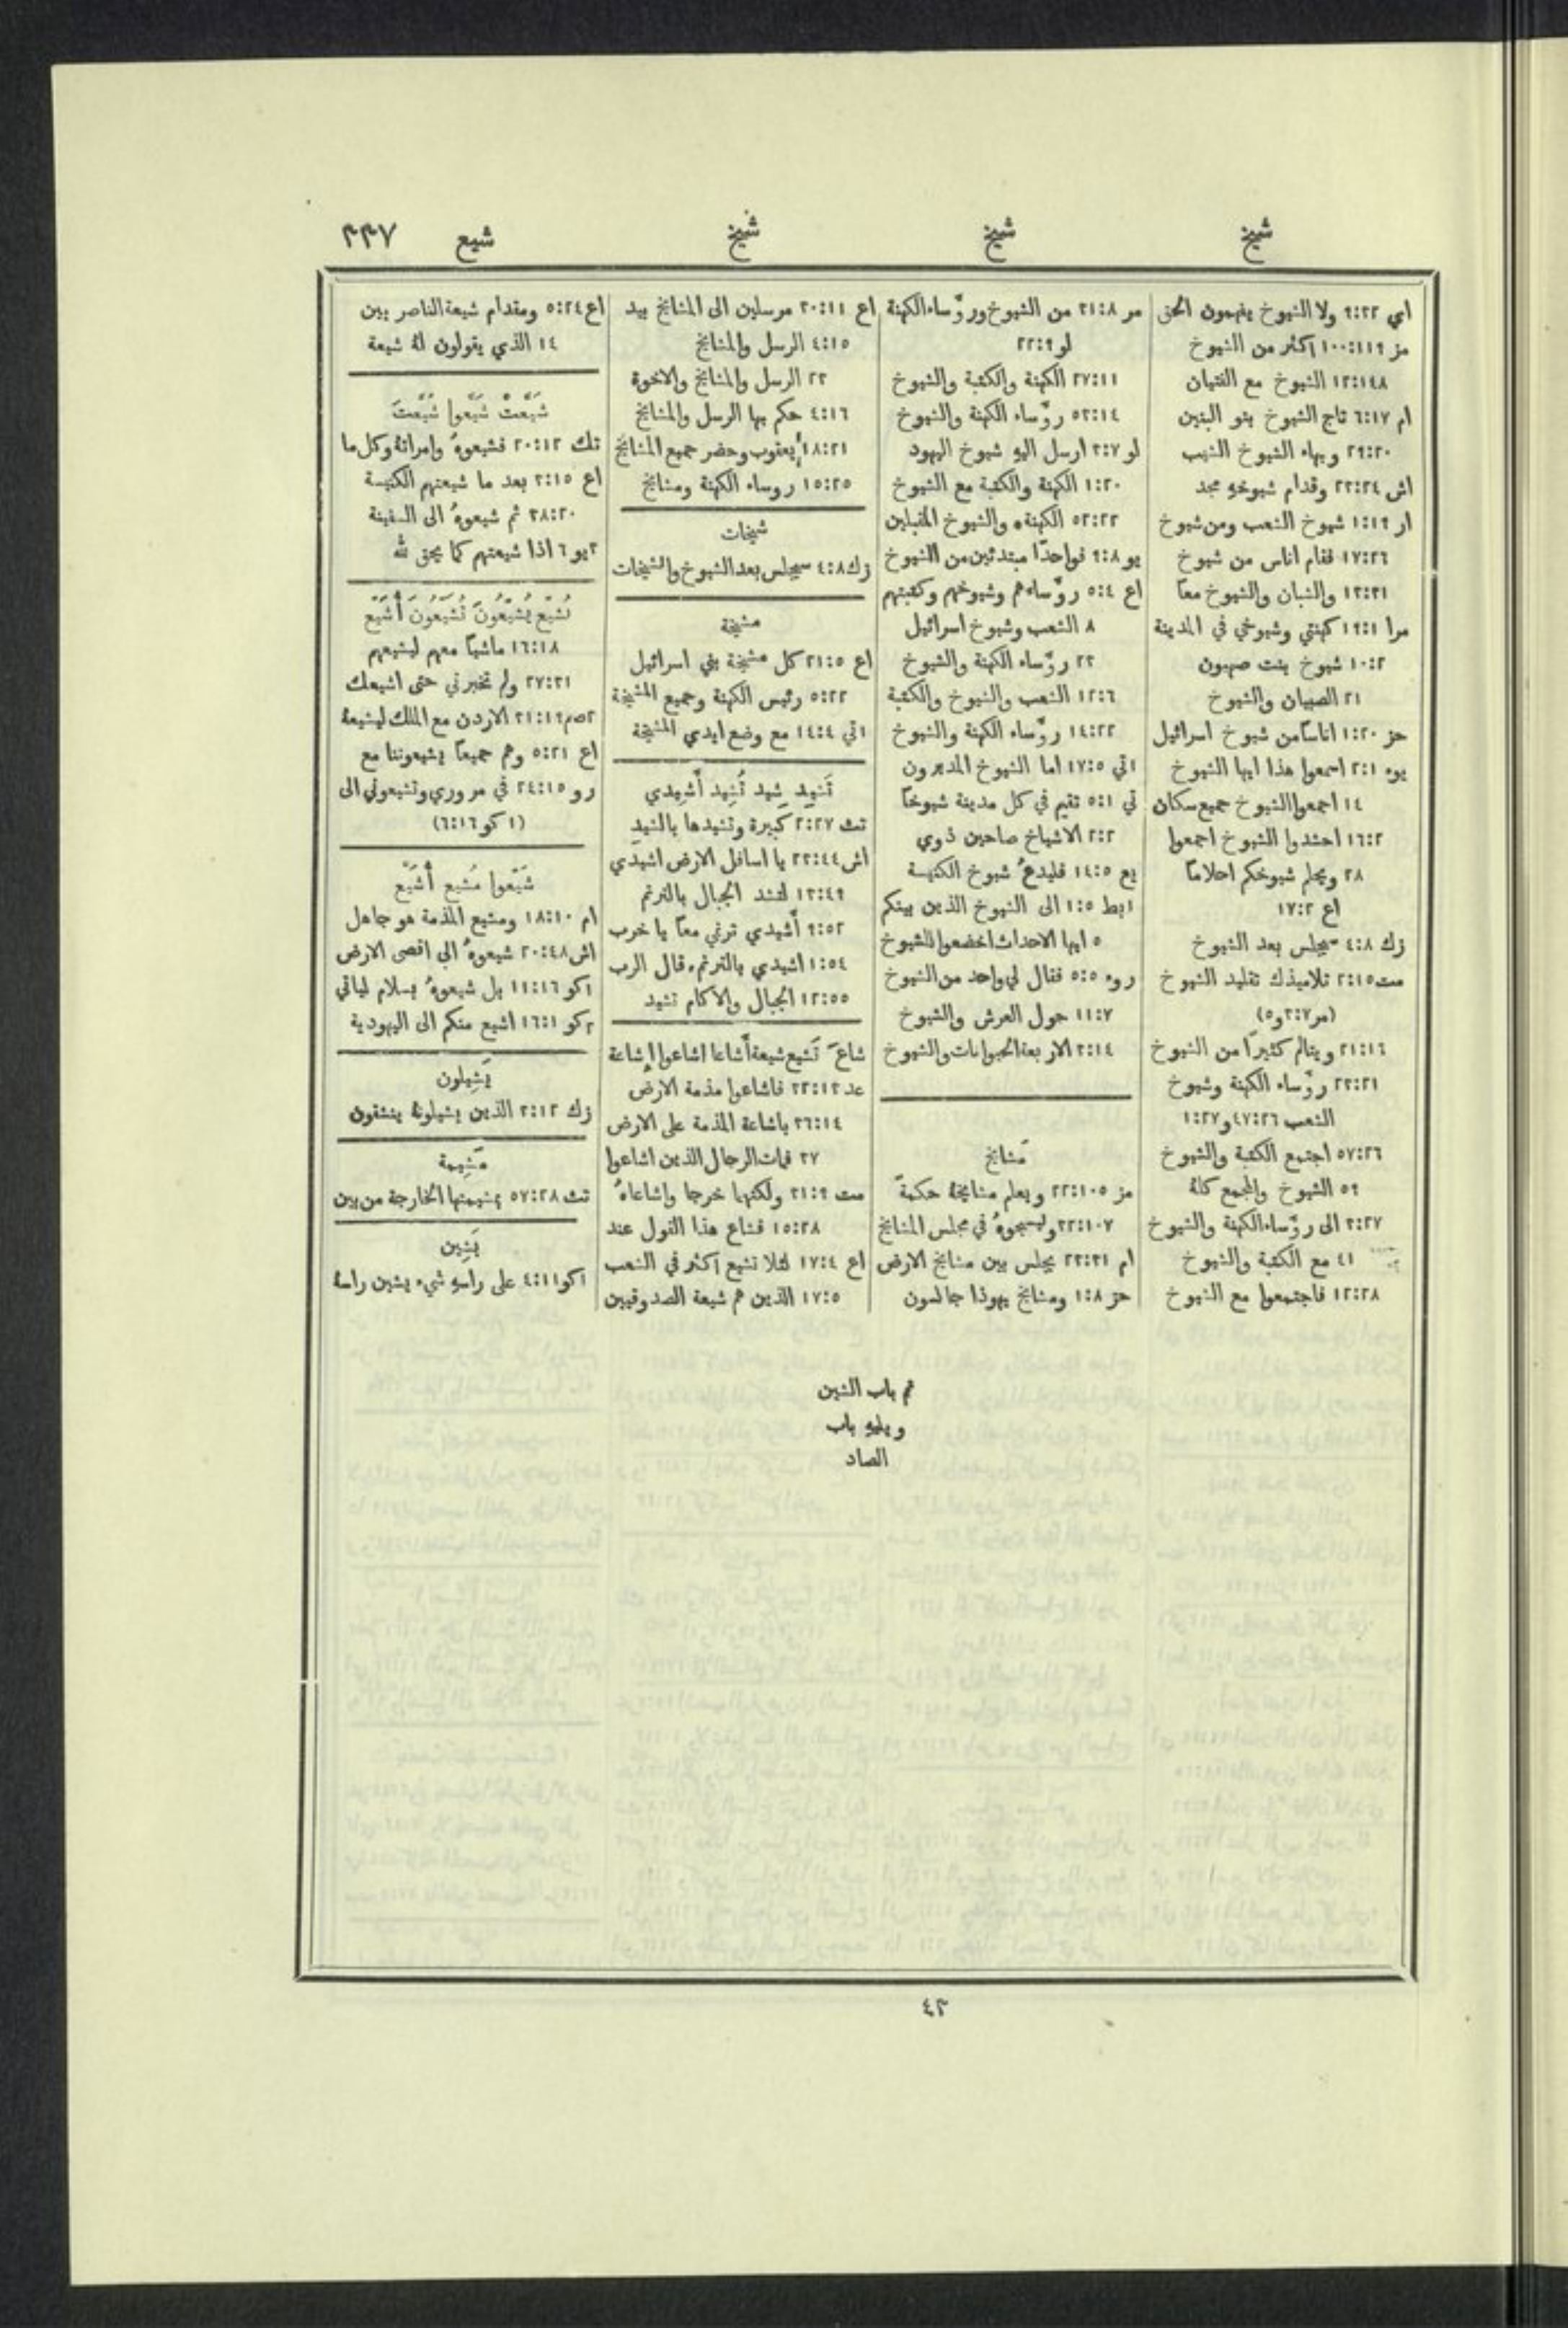 شيخ
شيخ
شيخ
شيع
٣٣٧
اي ٩:٣٢ ولا الشيوخ يفهمون الحق
مز ١٠٠:١١٩ اكثر من الشيوخ
١٢:١٤٨ الشيوخ مع الفتيان
ام ٦:١٧ تاج الشيوخ بنو البنين
٢٩:٢٠ وبهاء الشيوخ الشيب
اش ٢٣:٢٤ وقدام شيوخهِ مجد
ار ١:١٩ شيوخ الشعب ومن شيوخ
١٧:٢٦ فقام اناس من شيوخ
١٣:٣١ والشبان والشيوخ معًا
مرا ١٩:١ كهنتي وشيوخي في المدينة
١٠:٢ شيوخ بنت صهيون
٢١ الصبيان والشيوخ
حز ١:٢٠ اناسًا من شيوخ اسرائيل
يوء ٢:١ اسمعوا هذا ايها الشيوخ
١٤ اجمعوا الشيوخ جميع سكان
١٦:٢ احشدوا الشيوخ اجمعوا
٢٨ ويحلم شيوخكم احلامًا
اع ١٧:٢
زك ٤:٨ سيجلس بعد الشيوخ
مت ٢:١٥ تلاميذك تقليد الشيوخ
(مر ٣:٧ و٥)
٢١:١٦ ويتالم كثيرًا من الشيوخ
٢٣:٢١ روّساء الكهنة وشيوخ
الشعب ٤٧:٢٦ و ١:٢٧
٥٧:٢٦ اجتمع الكتبة والشيوخ
٥٩ الشيوخ والمجمع كلهُ
٣:٢٧ الى روّساء الكهنة والشيوخ
٤١ مع الكتبة والشيوخ
١٢:٢٨ فاجتمعوا مع الشيوخ
مر ٣١:٨ من الشيوخ وروّساء الكهنة
لو ٢٢:٩
٢٧:١١ الكهنة والكتبة والشيوخ
٥٣:١٤ روّساء الكهنة والشيوخ
لو ٣:٧ ارسل اليهِ شيوخ اليهود
١:٢٠ الكهنة والكتبة مع الشيوخ
٥٢:٢٢ الكهنة والشيوخ المقبلين
يو ٩:٨ فواحدًا مبتدئين من الشيوخ
اع ٥:٤ روّساءهم وشيوخهم وكتبتهم
٨ الشعب وشيوخ اسرائيل
٢٣ روّساء الكهنة والشيوخ
١٢:٦ الشعب والشيوخ والكتبة
١٤:٢٣ روّساء الكهنة والشيوخ
١تي ١٧:٥ اما الشيوخ المدبرون
تي ٥:١ تقيم في كل مدينة شيوخًا
٢:٢ الاشياخ صاحين ذوي
يع ١٤:٥ فليدعُ شيوخ الكنيسة
١بط ١:٥ الى الشيوخ الذين بينكم
٥ ايها الاحداث اخضعوا للشيوخ
روء ٥:٥ فقال لي واحد من الشيوخ
١١:٧ حول العرش والشيوخ
٣:١٤ الاربعة الحيوانات والشيوخ
مَشايخ
مز ٢٢:١٠٥ ويعلم مشايخهُ حكمة
٣٢:١٠٧ وليسبحوهُ في مجلس المشايخ
ام ٢٣:٣١ يجلس بين مشايخ الارض
حز ١:٨ ومشايخ يهوذا جالسون
اع ٣٠:١١ مرسلين الى المشايخ بيد
٤:١٥ الرسل والمشايخ
٢٣ الرسل والمشايخ والاخوة
٤:١٦ حكم بها الرسل والمشايخ
١٨:٢١ يعقوب وحضر جميع المشايخ
١٥:٢٥ روساء الكهنة ومشايخ
شيخات
زك ٤:٨ سيجلس بعد الشيوخ والشيخات
مشيخة
اع ٢١:٥ كل مشيخة بني اسرائيل
٥:٢٢ رئيس الكهنة وجميع المشيخة
١تي ١٤:٤ مع وضع ايدي المشيخة
تَشيد شيد تُشِيد أَشِيدي
تث ٢:٢٧ كبيرة وتشيدها بالشيد
اش ٢٣:٤٤ يا اسافل الارض اشيدي
١٣:٤٩ لتشد الجبال بالترنم
٩:٥٢ أَشيدي ترني معًا يا خرب
١:٥٤ اشيدي بالترنم، قال الرب
١٢:٥٥ الجبال والآكام تشيد
شاعَ تَشيع شيعة أَشاعا اشاعوا إِشاعة
عد ٣٢:١٣ فاشاعوا مذمة الارض
٣٦:١٤ باشاعة المذمة على الارض
٣٧ فمات الرجال الذين اشاعوا
مت ٣١:٩ ولكنهما خرجا واشاعاهُ
١٥:٢٨ فشاع هذا القول عند
اع ١٧:٤ لئلا تشيع اكثر في الشعب
١٧:٥ الذين هم شيعة الصدوقيين
اع ٥:٢٤ ومقدام شيعة الناصريين
١٤ الذي يقولون لهُ شيعة
شَيَّعتْ شَيَّعوا شَيَّعتَ
تك ٢٠:١٢ فشيعوهُ وامراتهُ وكل ما
اع ٣:١٥ بعد ما شيعتهم الكنيسة
٣٨:٢٠ ثم شيعوهُ الى السفينة
٣يو ٦ اذا شيعتهم كما يحق لله
تُشَيِّع يُشَيِّعُونَ تُشَيِّعُونَ أُشَيِّع
١٦:١٨ ماشيًا معهم ليشيعهم
٢٧:٣١ ولم تخبرني حتى اشيعك
٢صم ٣١:١٩ الاردن مع الملك ليشيعهُ
اع ٥:٢١ وهم جميعًا يشيعوننا مع
رو ٢٤:١٥ في مروري وتشيعوني الى
(١ كو ٦:١٦)
شَيِّعوا مُشيع أُشَيِّع
ام ١٨:١٠ ومشيع المذمة هو جاهل
اش ٢٠:٤٨ شيعوهُ الى اقصى الارض
١كو ١١:١٦ بل شيعوهُ بسلام لياتي
٢كو ١٦:١ اشيع منكم الى اليهودية
يَشِيلون
زك ٣:١٢ الذين يشيلونهُ ينشقون
مَشِيمة
تث ٥٧:٢٨ بمشيمتها الخارجة من بين
يَشِين
١كو ٤:١١ على راسهِ شيء يشين راسهُ
تم باب الشين
ويليهِ باب
الصاد
٤٣